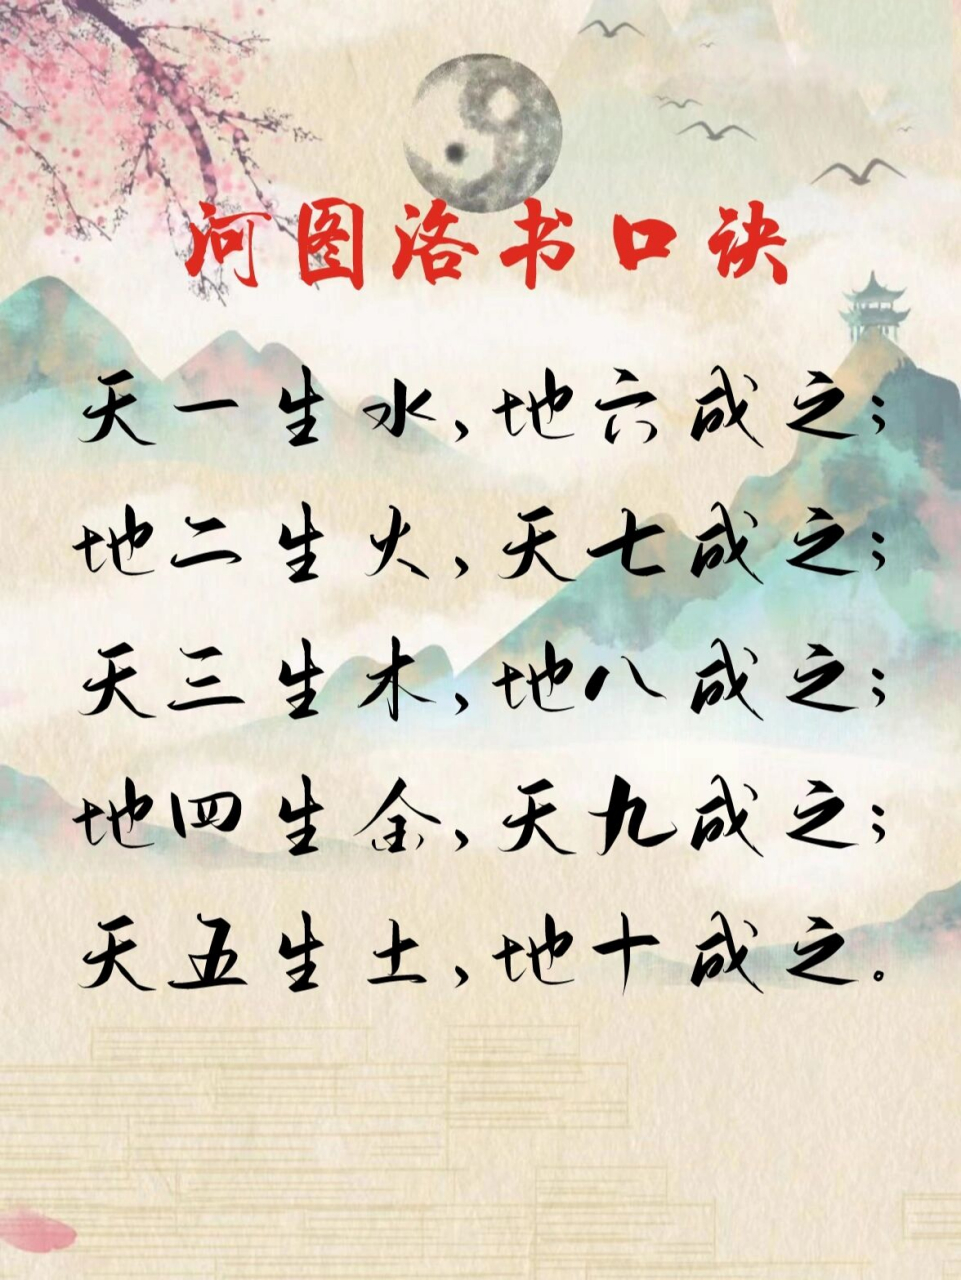 河图洛书口诀
天一生水,地六成之;
地二生火,天七成之;
天三生木,地八成之;
地四生金,天九成之;
天五生土,地十成之。